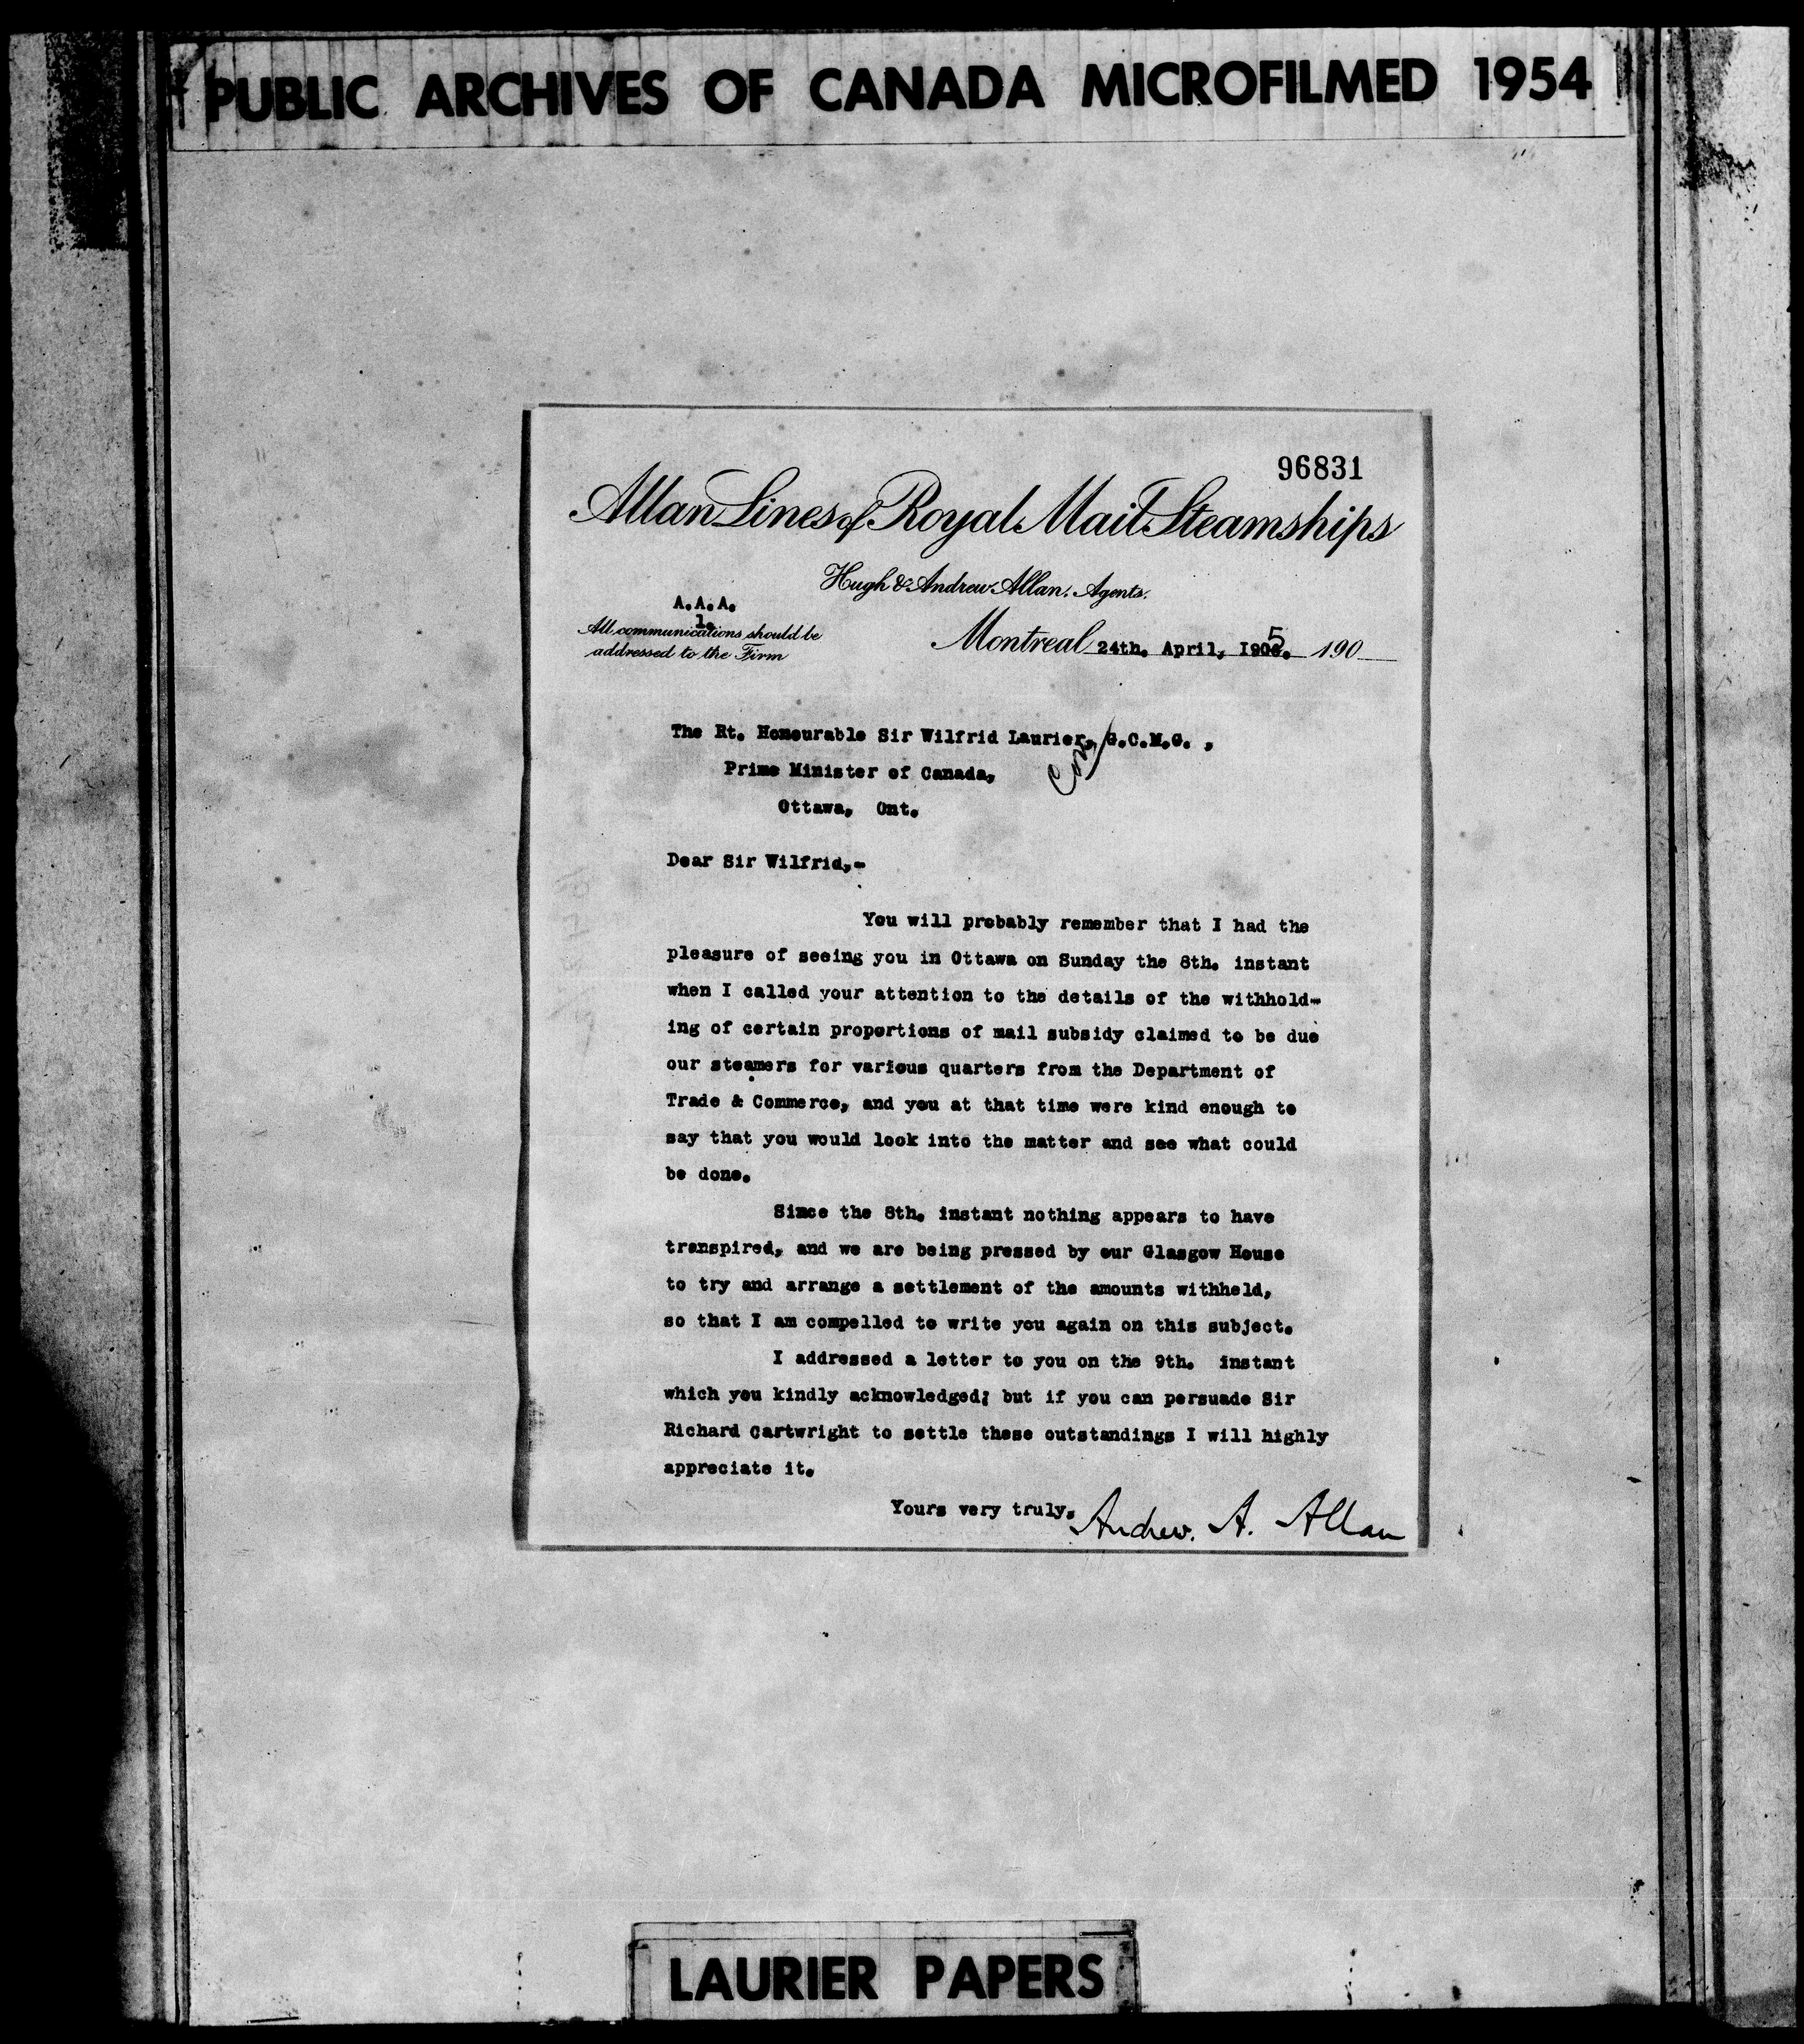 PUBLIC ARCHIVES OF CANADA MICROFILMED 1954
96831
Allan Lines of Royal Mail Steamships
Hugh & Andrew Allan. Agents.
A.A.A.
1.
All communications should be
addressed to the Firm
Montreal 24th. April, 1905. 190
The Rt. Honourable Sir Wilfrid Laurier, G.C.M.G. ,
Prime Minister of Canada,
Ottawa, Ont.
Dear Sir Wilfrid,-
You will probably remember that I had the
pleasure of seeing you in Ottawa on Sunday the 8th. instant
when I called your attention to the details of the withhold-
ing of certain proportions of mail subsidy claimed to be due
our steamers for various quarters from the Department of
Trade & Commerce, and you at that time were kind enough to
say that you would look into the matter and see what could
be done.
Since the 8th. instant nothing appears to have
transpired, and we are being pressed by our Glasgow House
to try and arrange a settlement of the amounts withheld,
so that I am compelled to write you again on this subject.
I addressed a letter to you on the 9th. instant
which you kindly acknowledged; but if you can persuade Sir
Richard Cartwright to settle these outstandings I will highly
appreciate it.
Yours very truly,
Andrew. A. Allan
LAURIER PAPERS